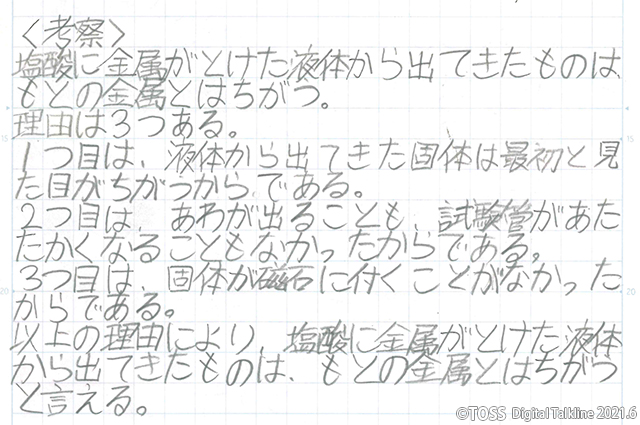 〈考察〉
塩酸に金属がとけた液体から出てきたものは、
もとの金属とはちがつ。
理由は3つある。
1つ目は、液体から出てきた固体は最初と見
た目がちがうからである。
2つ目は あわが出ることも、試験管があた
たかくなることもなかったからである。
3つ目は、固体が磁石に付くことがなかった
からである。
以上の理由により、塩酸に金属がとけた液体
から出てきたものは、もとの金属とはちがつ
と言える。
15
15
20
20
©TOSS Digital Talkline 2021.6